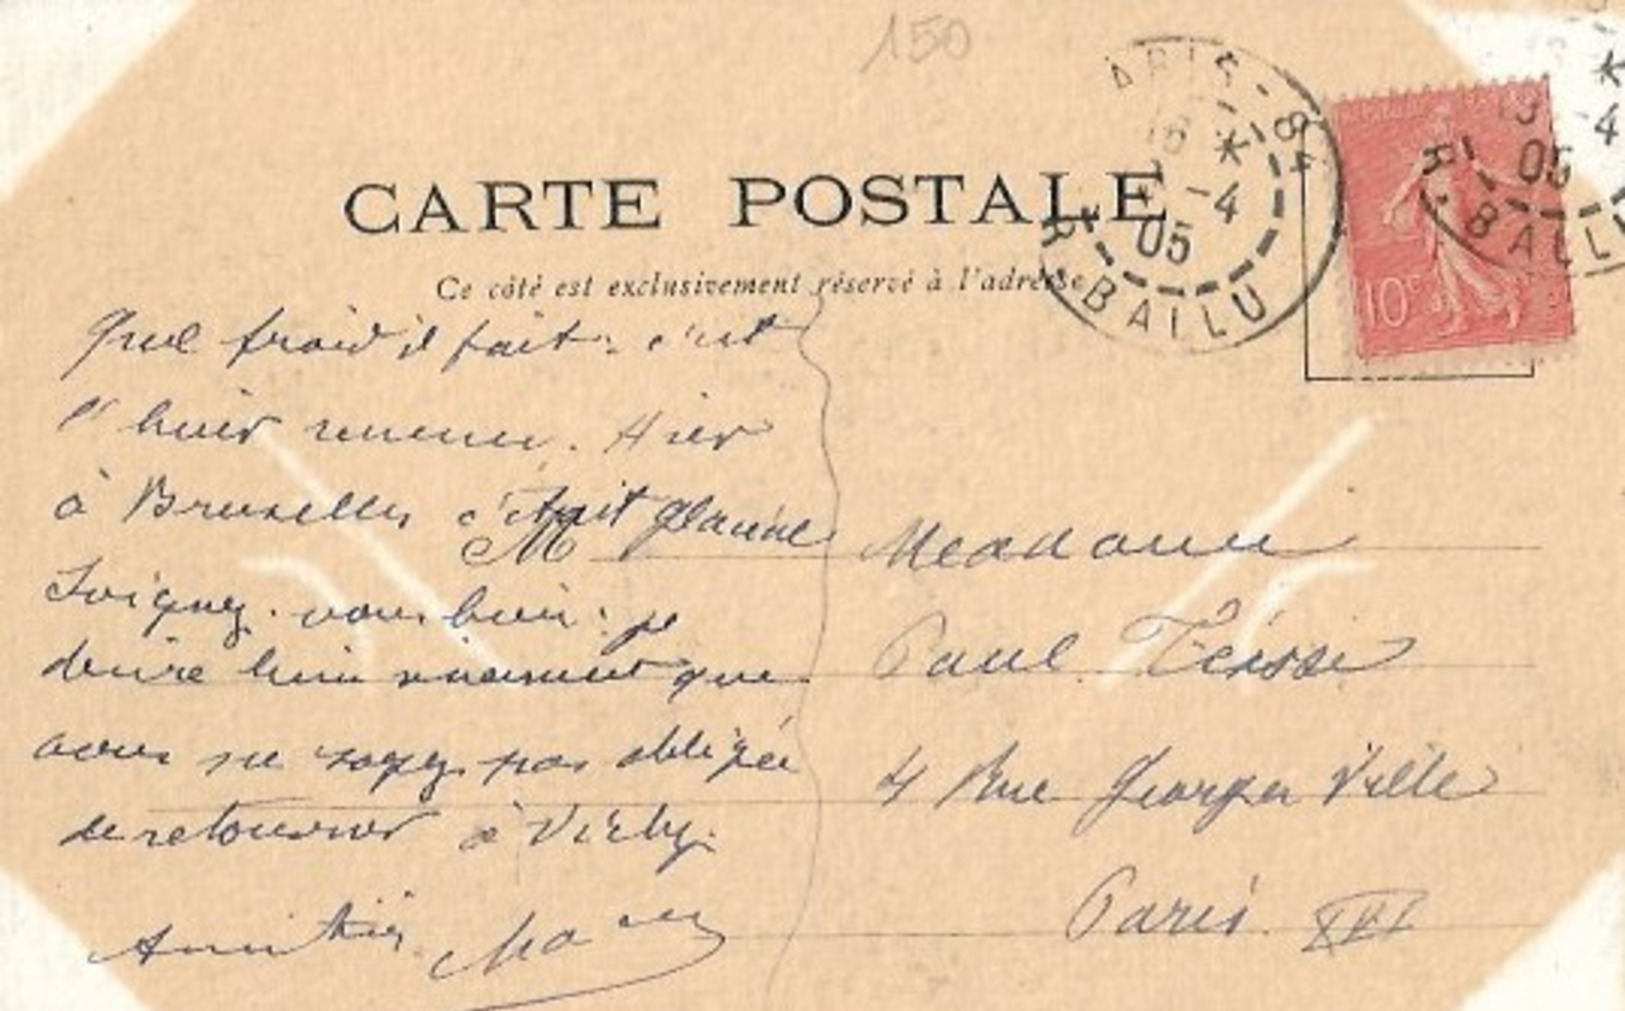 150
CARTE POSTALE
Ce côté est exclusivement réservé à l'adresse
PARIS - 84
18 * 
7 - 4
05
R. BAILU
* 
- 4
05
R. BAIL
10c
Quel froid il fait : c'est
l'hiver revenu. Hier
à Bruxelles c'était glacial
M
Soignez-vous bien : je
désire bien vivement que
vous ne soyez pas obligée
de retourner à Vichy.
Amitiés
Madame
Paul
4 Rue Georges Ville
Paris XVI